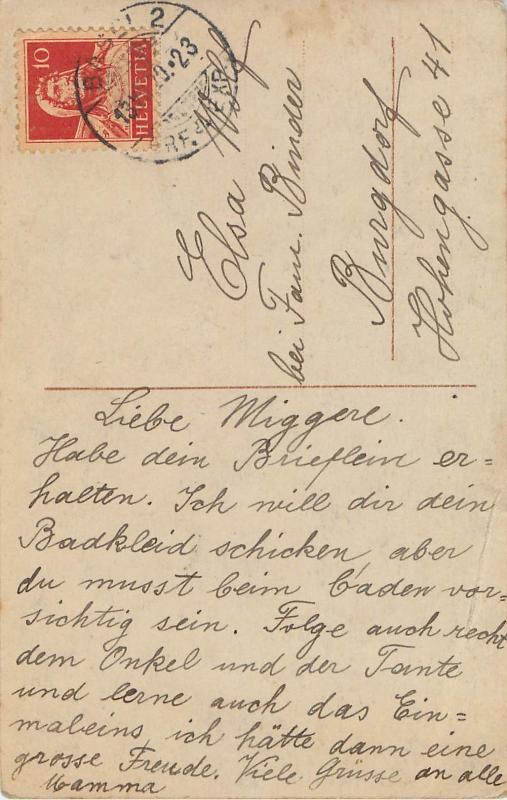 10
HELVETIA
2
23
Elsa Wolf
bei Fam. Binder
Burgdorf
Hohengasse 41
Liebe Miggere.
Habe dein Brieflein er=
halten. Ich will dir dein
Badkleid schicken, aber
du musst beim baden vor=
sichtig sein. Folge auch recht
dem Onkel und der Tante
und lerne auch das Ein=
maleins, ich hätte dann eine
grosse Freude. Viele Grüsse an alle
Mamma